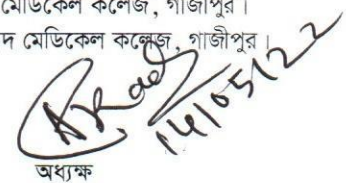 মেডিকেল কলেজ, গাজীপুর।
দ মেডিকেল কলেজ, গাজীপুর।
14/05/22
অধ্যক্ষ